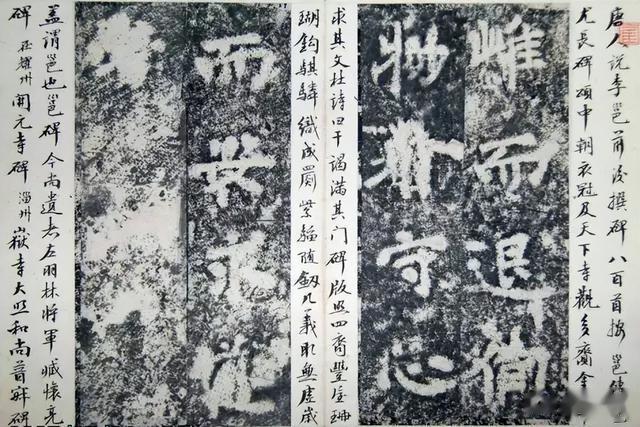 唐人說李邕前後撰碑八百首按邕傳
尤長碑頌中朝衣冠及天下寺觀多齎金
而退
漸守心
求其文杜詩曰干謁滿其門碑版照四裔豐屋珊
瑚鈎騏驎織成罽紫騮隨劔几義取無虛歲
而
蓋謂邕也邕碑今尚遺者左羽林將軍臧懷亮
碑在耀州開元寺碑淄州嶽寺大照和尚普寂碑